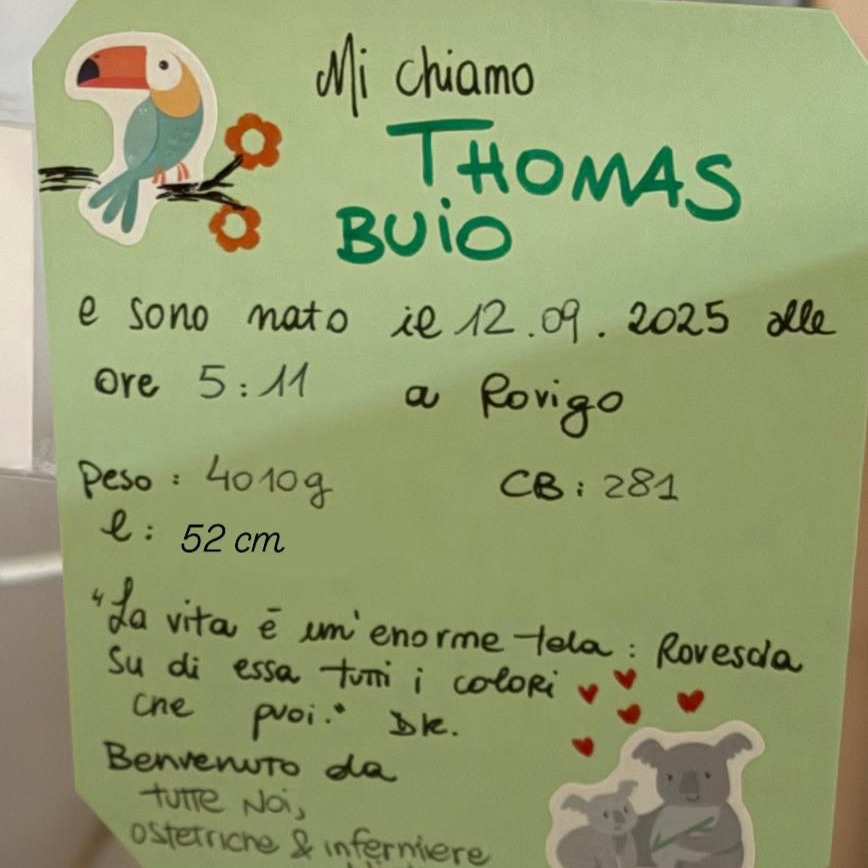 Mi chiamo
THOMAS
BUiO
e sono nato il 12.09.2025 alle
ore 5:11 a Rovigo
Peso: 4010g CB: 281
l: 52 cm
"La vita è un'enorme tela: Rovescia
Su di essa tutti i colori
che puoi." Dk.
Benvenuto da
tutte Noi,
ostetriche & infermiere